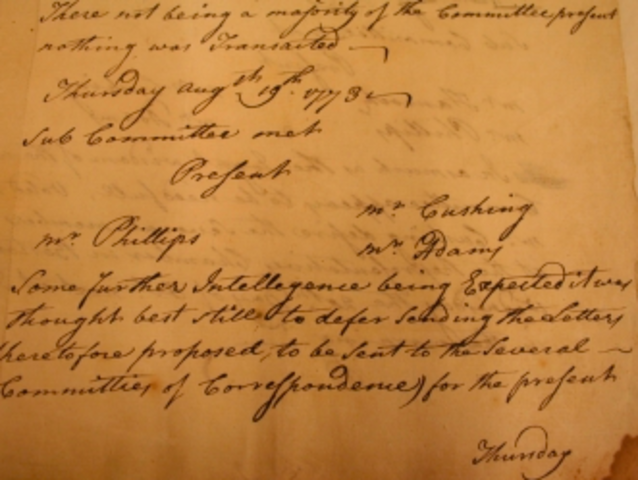 There not being a majority of the Committee present
nothing was Transacted —
Thursday augst. 19th. 1773 —
Sub Committee met
Present
mr. Cushing
mr. Phillips
mr. Adams
Some further Intellegence being Expected it was
thought best still to defer sending the Letters
heretofore proposed, to be sent to the Several —
Committies of Correspondence) for the present
Thursday